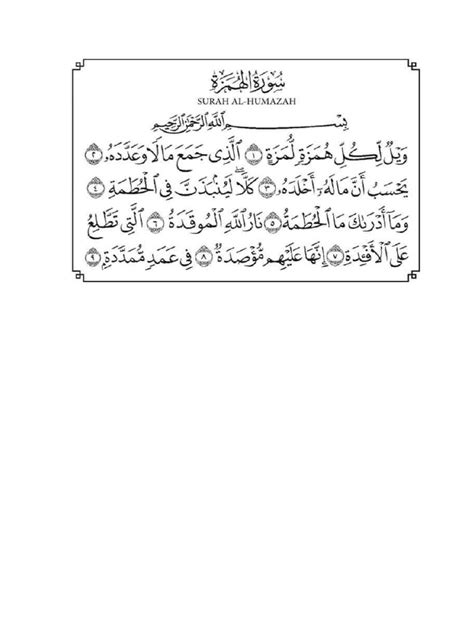 سُورَةُ الْهُمَزَةِ
SURAH AL-HUMAZAH
بِسْمِ اللَّهِ الرَّحْمَٰنِ الرَّحِيمِ
وَيْلٌ لِّكُلِّ هُمَزَةٍ لُّمَزَةٍ ١ الَّذِي جَمَعَ مَالًا وَعَدَّدَهُ ٢
يَحْسَبُ أَنَّ مَالَهُ أَخْلَدَهُ ٣ كَلَّا ۖ لَيُنبَذَنَّ فِي الْحُطَمَةِ ٤
وَمَا أَدْرَىٰكَ مَا الْحُطَمَةُ ٥ نَارُ اللَّهِ الْمُوقَدَةُ ٦ الَّتِي تَطَّلِعُ
عَلَى الْأَفْئِدَةِ ٧ إِنَّهَا عَلَيْهِم مُّؤْصَدَةٌ ٨ فِي عَمَدٍ مُّمَدَّدَةٍ ٩